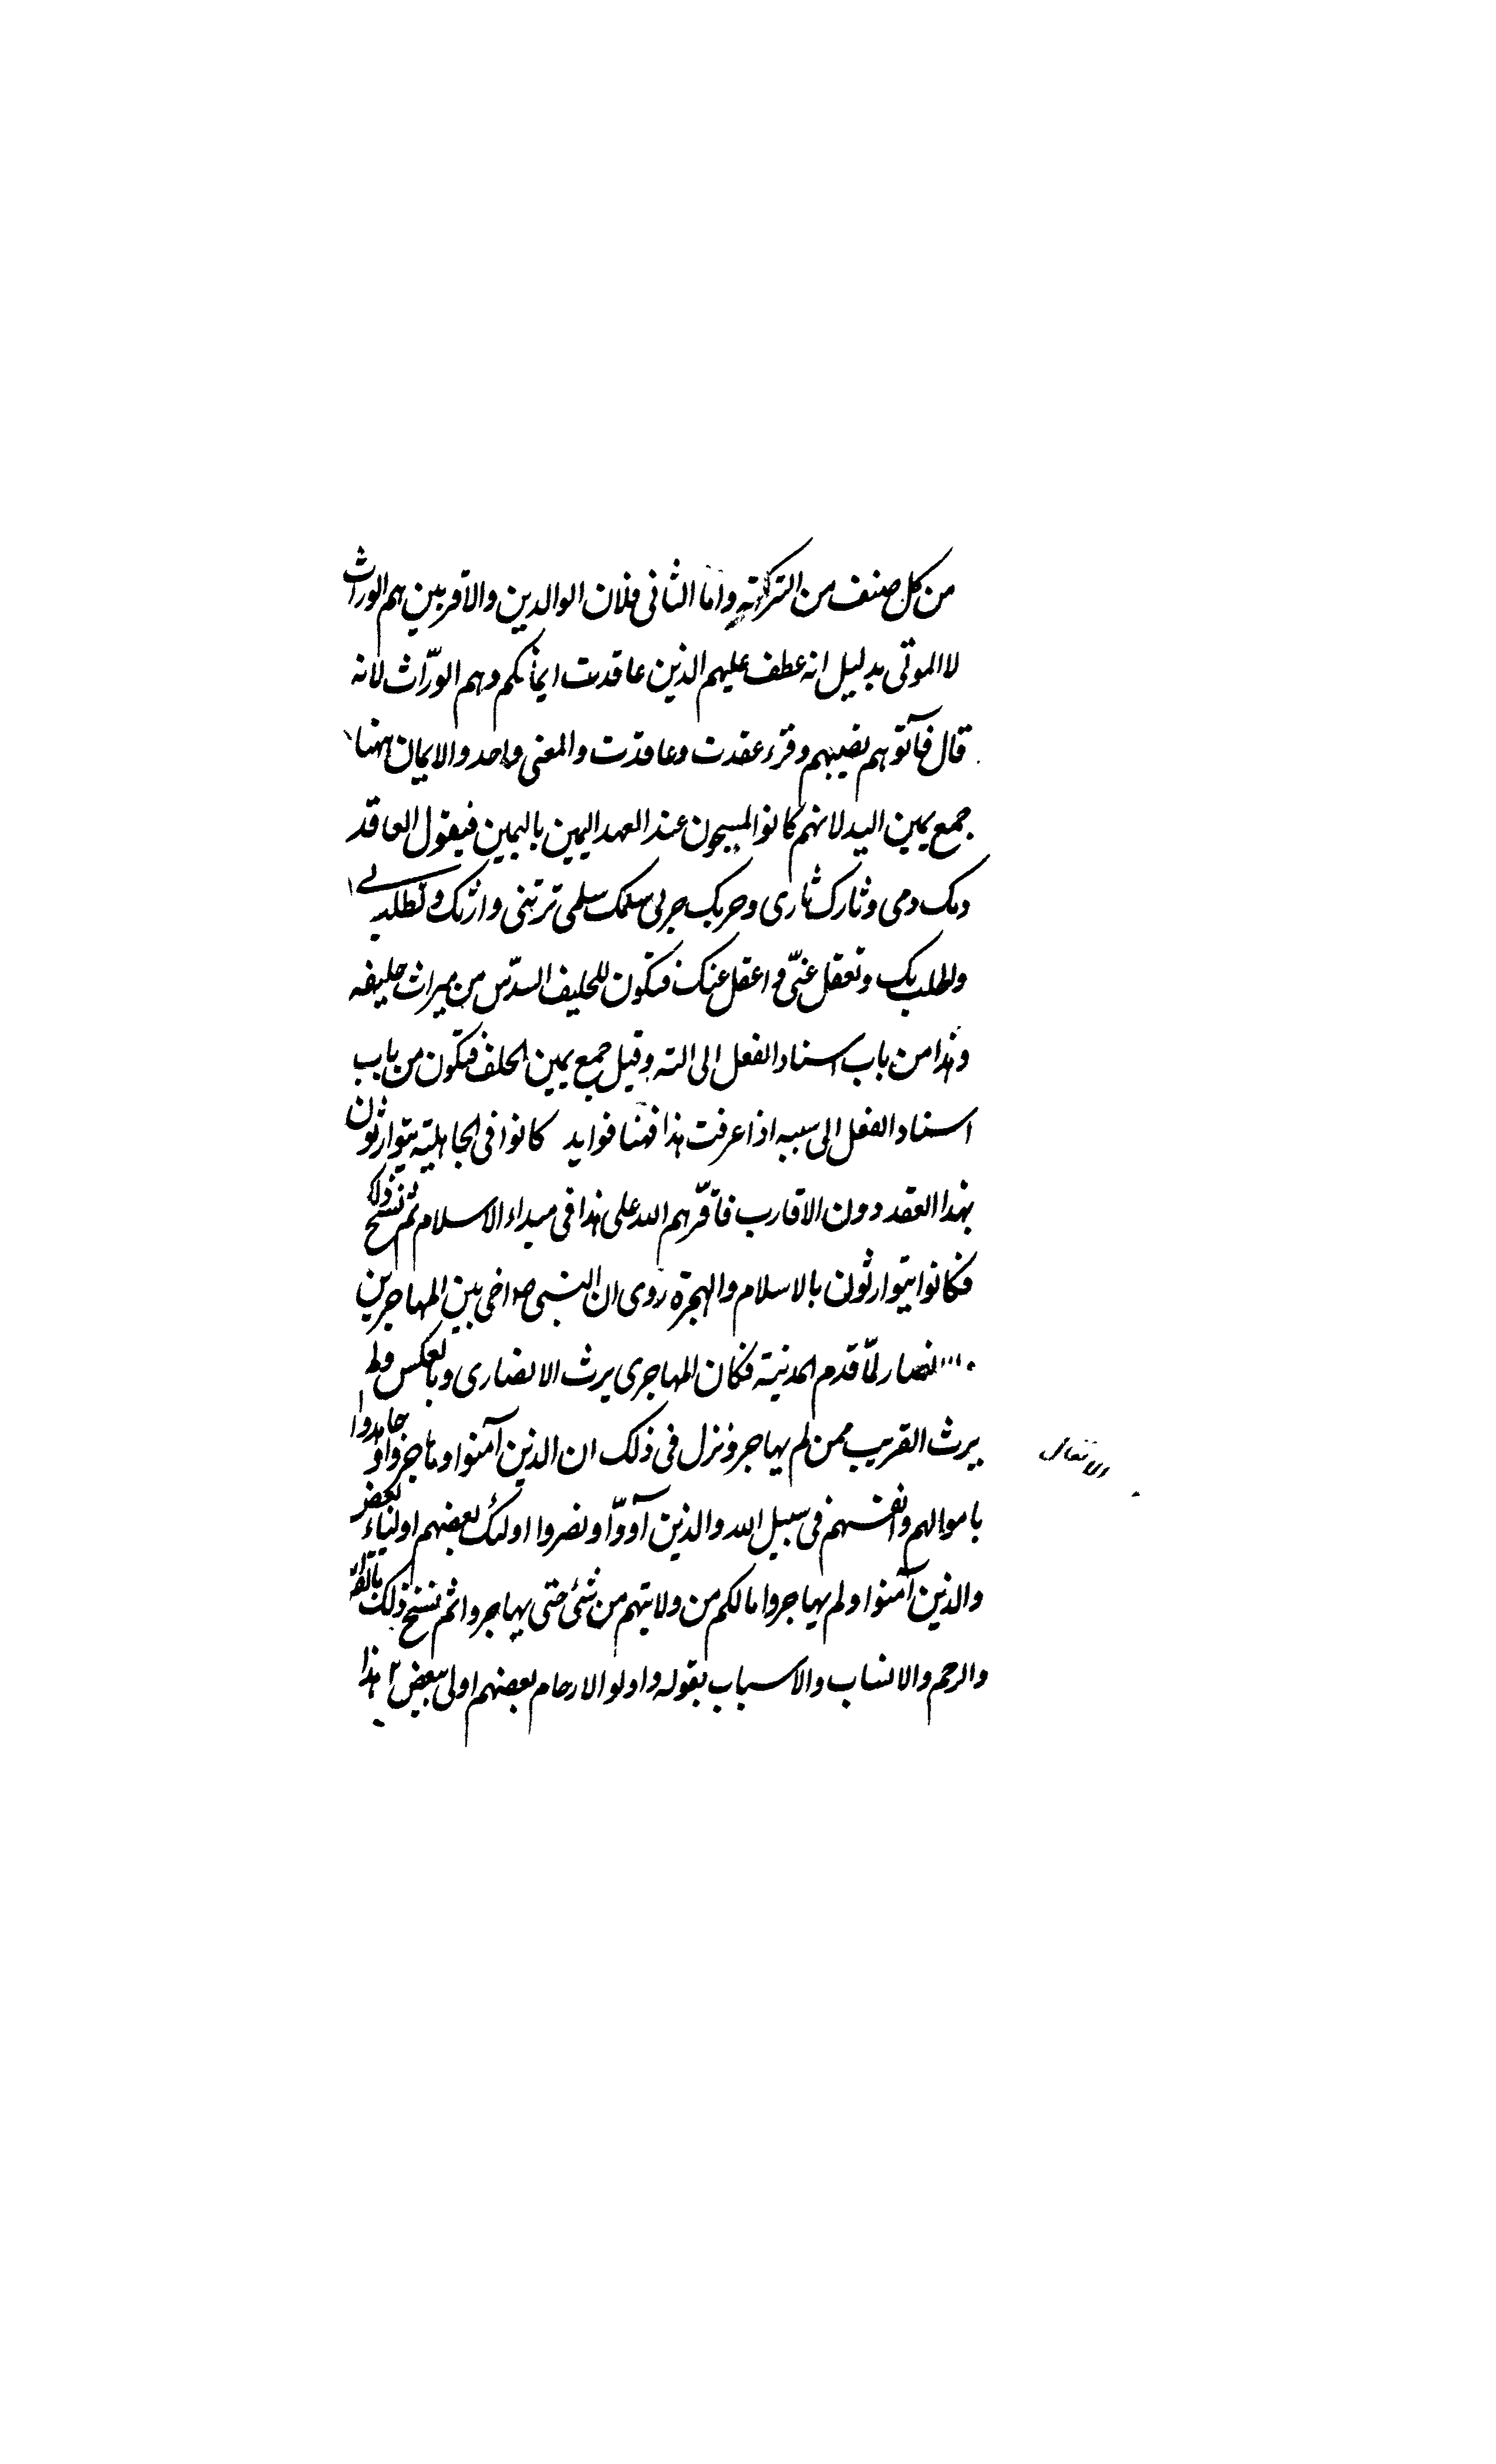 من كل صنف من التركة واما الثانى فلان الوالدين والاقربين هم الوراث
لا الموتى بدليل انه عطف عليهم الذين عاقدت ايمانكم وهم الورّاث لانه
قال فآتوهم نصيبهم وقرء عقدت وعاقدت والمعنى واحد والايمان ههنا
جمع يمين اليد لانهم كانوا يمسحون عند العهد اليمين باليمين فيقول العاقد
دمك دمى وثارك ثارى وحربك حربى سلمك سلمى ترثنى وارثك وتطلب بى
واطلب بك وتعقل عنّى واعقل عنك فتكون للحليف السدس من ميراث حليفه
وهذا من باب اسناد الفعل الى آلته وقيل جمع يمين الحلف فتكون من باب
اسناد الفعل الى سببه اذا عرفت هذا فهنا فوايد كانوا فى الجاهلية يتوارثون
بهذا العقد دون الاقارب فاقرّهم الله على هذا فى مبداء الاسلام ثم نسخ ذلك
فكانوا يتوارثون بالاسلام والهجرة روى ان النبى ص واخى بين المهاجرين
لمّا قدم المدينة فكان المهاجرى يرث الانصارى وبالعكس ولم
يرث القريب ممن لم يهاجر ونزل فى ذلك ان الذين آمنوا وهاجروا وجاهدوا
باموالهم وانفسهم فى سبيل الله والذين آووا ونصروا اولئك بعضهم اولياء بعض
والذين آمنوا ولم يهاجروا مالكم من ولايتهم من شئ حتى يهاجروا ثم نسخ ذلك بالقرابة
والرحم والانساب والاسباب بقوله واولو الارحام بعضهم اولى ببعض هذا
الانفال